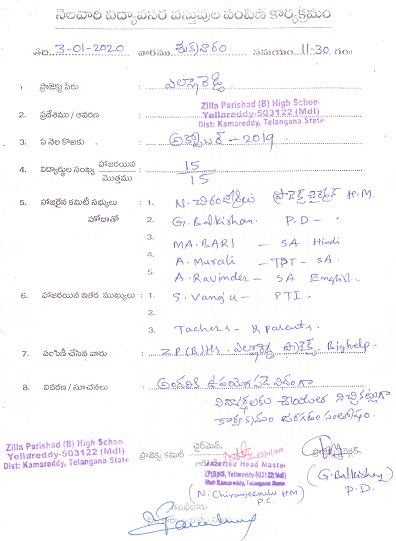 నెలవారీ విద్యావసర వస్తువుల పంపిణి కార్యక్రమం
తేది. 3-01-2020 వారము శుక్రవారం సమయం. 11-30 గం॥
1 ప్రాజెక్టు పేరు : ఎల్లారెడ్డి
2. ప్రదేశము / ఆవరణ : Zilla Parishad (B) High School
Yellareddy-503122 (Mdl)
Dist: Kamareddy, Telangana State
3. ఏ నెల కొఱకు : అక్టోబర్ - 2019
4. విద్యార్థుల సంఖ్య హాజరయిన / మొత్తము : 15 / 15
5. హాజరైన కమిటీ సభ్యులు : 1. N. చిరంజీవులు ప్రాజెక్ట్ చైర్మన్ H.M.
హోదాతో 2. G. Balkishan. P.D -
3. MA. BARI - SA Hindi
4. A. Murali - TPT - SA.
5. A. Ravinder - SA English.
6. హాజరయిన ఇతర ముఖ్యులు : 1. S. Vanaja - PTI.
2.
3. Tachers - & parents.
7. పంపిణీ చేసిన వారు : Z.P(B)HS. ఎల్లారెడ్డి ప్రాజెక్ట్ Bighelp.
8. వివరణ / సూచనలు : అందరికి ఉపయోగపడే విధంగా
విద్యార్థులకు చేయుత నిచ్చినట్లుగా
కార్యక్రమం జరగడం సంతోషం.
Zilla Parishad (B) High School
Yellareddy-503122 (Mdl)
Dist: Kamareddy, Telangana State
ప్రాజెక్టు కమిటీ చైర్మెన్,
Gazetted Head Master
ZP(B)HS, Yellareddy-503122(Mdl)
Dist: Kamareddy, Telangana State
(N. Chiranjeevulu HM)
P.C.
(G. Balkishan)
P.D.